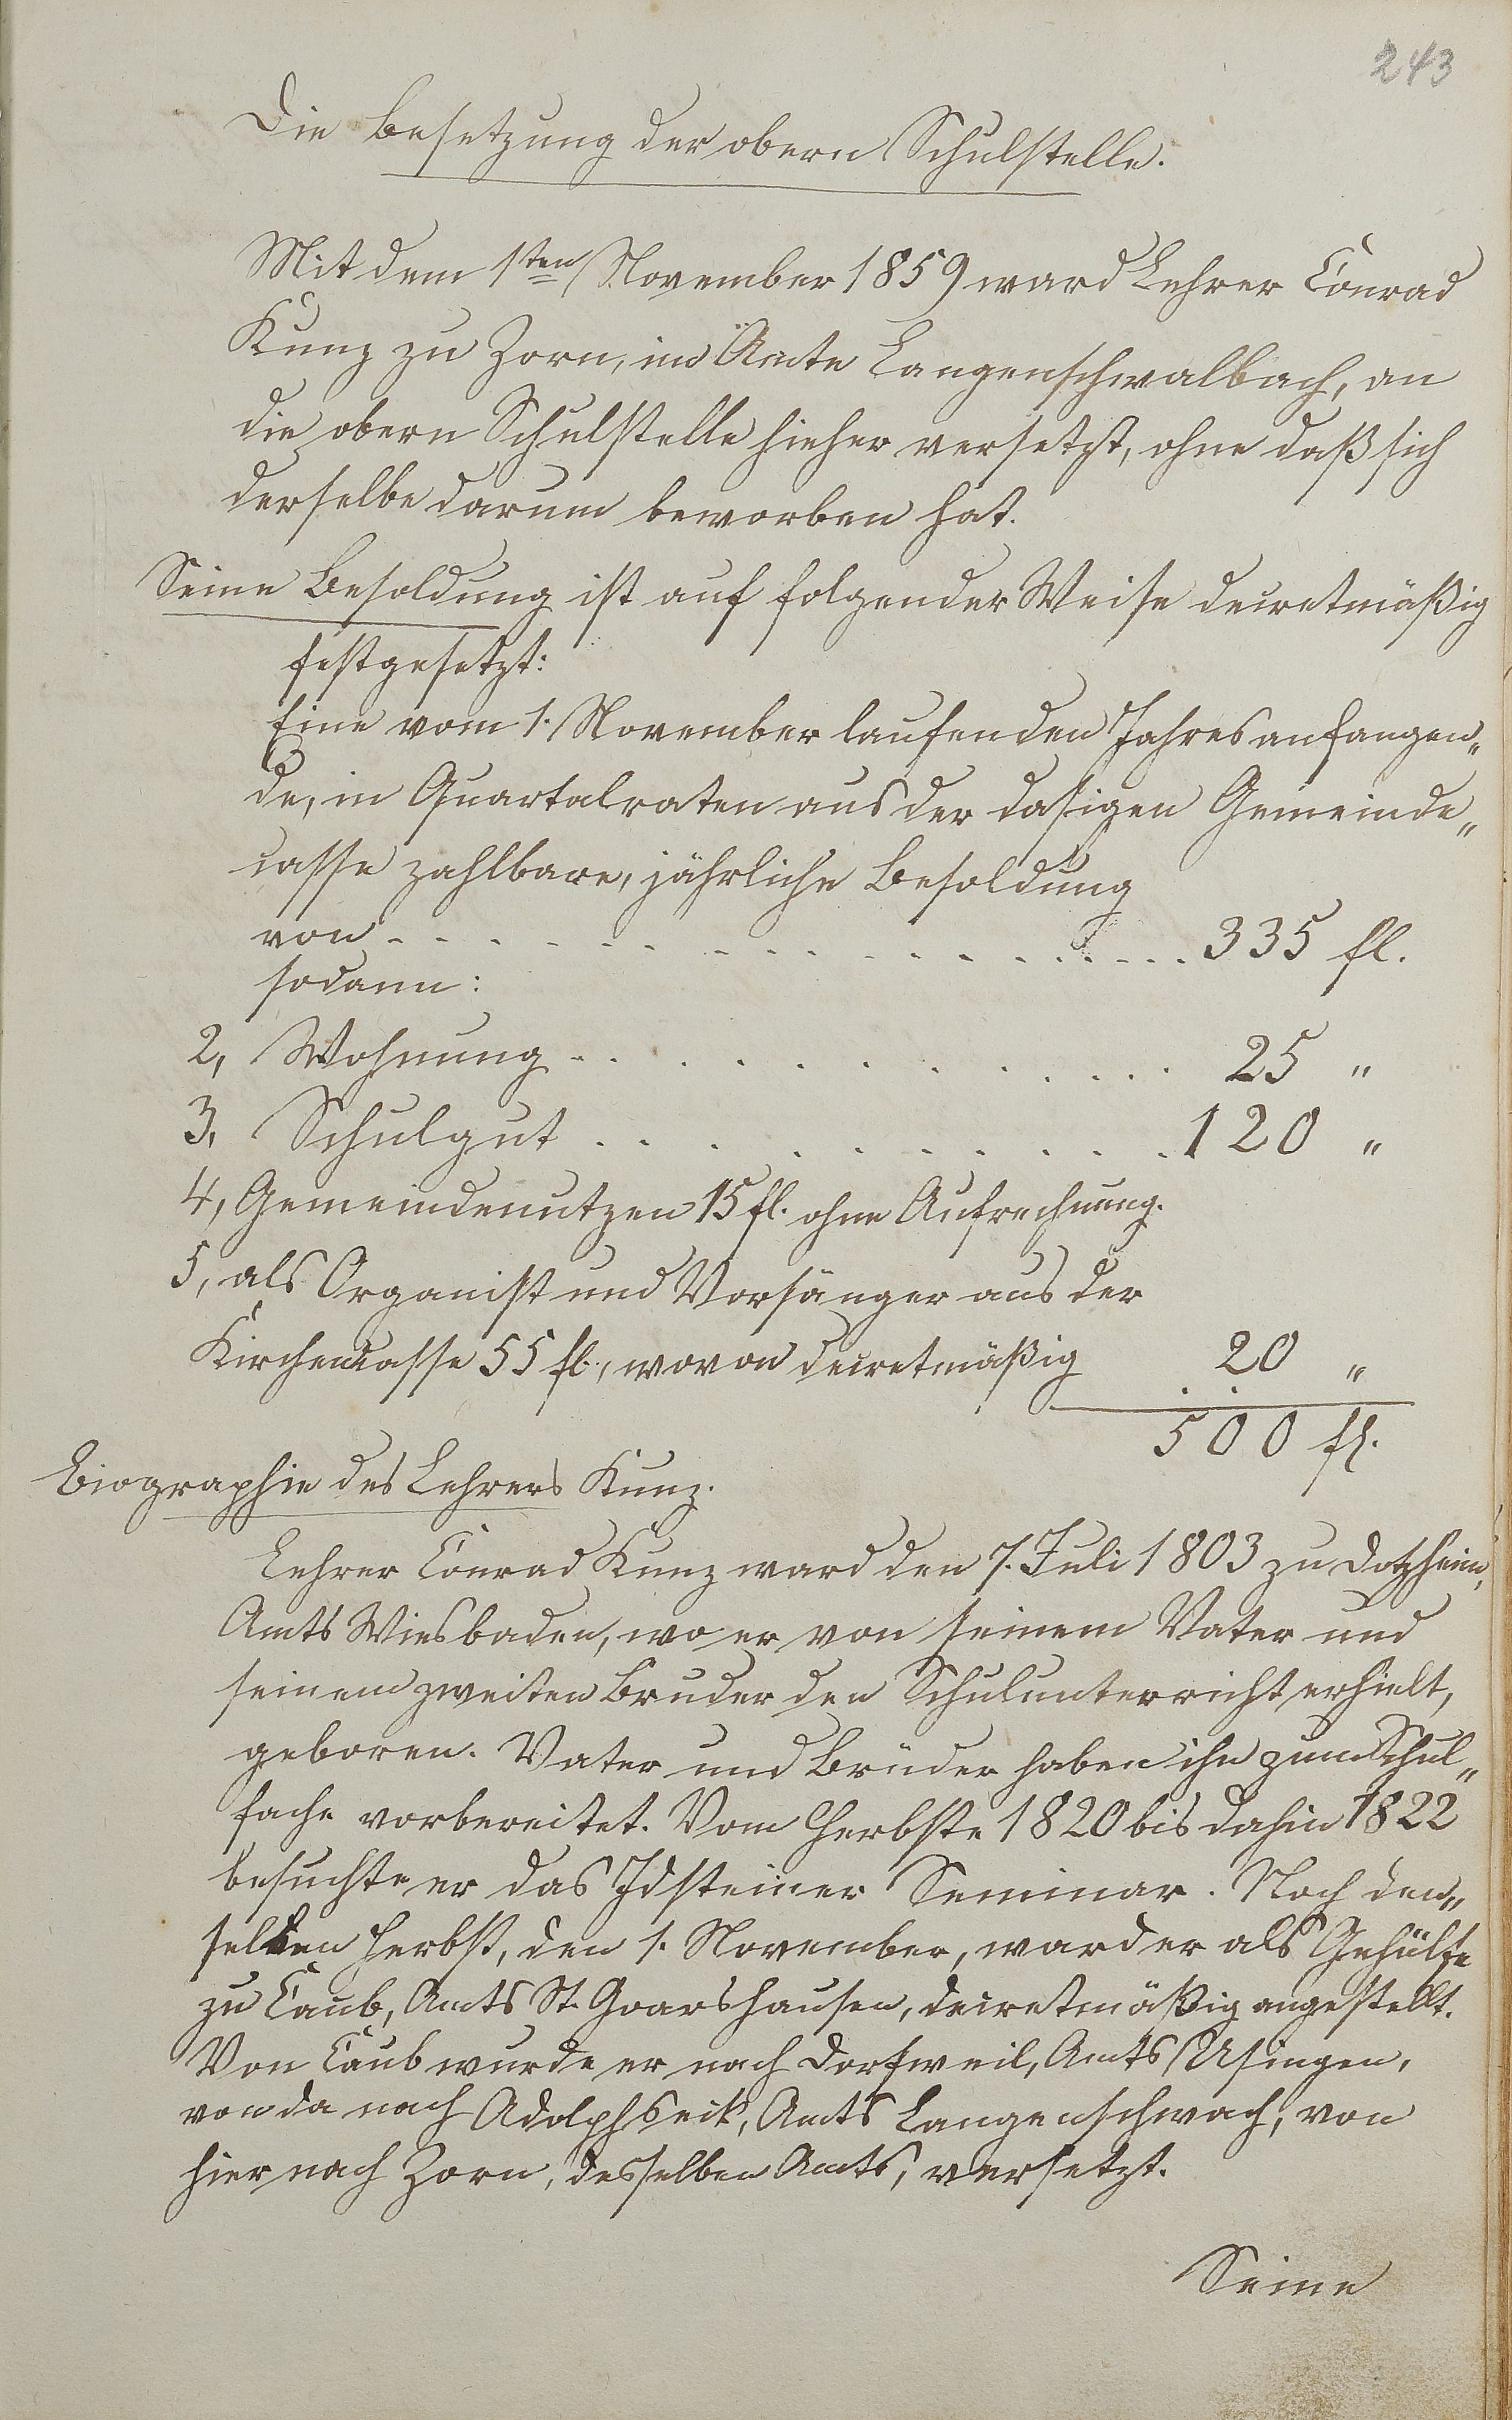 243
Die Besetzung der obern Schulstelle.
Mit dem 1ten November 1859 ward Lehrer Conrad
Kunz zu Zorn, im Amte Langenschwalbach, an
die obern Schulstelle hieher versetzt, ohne daß sich
derselbe darum beworben hat.
Seine Besoldung ist auf folgender Weise decretmäßig
festgesetzt:
Eine vom 1. November laufenden Jahres anfangen„
de, in Quartalraten aus der dasigen Gemeinde„
casse zahlbare, jährliche Besoldung
von - - - - - - - - - - - - - - - 335 fl.
sodann:
2, Wohnung - . . . . . . . . . . . 25 "
3, Schulgut . . . . . . . . . . . 120 "
4, Gemeindenutzen 15 fl. ohne Aufrechnung.
5, als Organist und Vorsänger aus der
Kirchencasse 55 fl., wovon decretmäßig 20 "
500 fl.
Biographie des Lehrers Kunz.
Lehrer Conrad Kunz ward den 7. Juli 1803 zu Dotzheim,
Amts Wiesbaden, wo er von seinem Vater und
seinem zweiten Bruder den Schulunterricht erhielt,
geboren. Vater und Brüder haben ihn zum Schul„
fache vorbereitet. Vom Herbste 1820 bis dahin 1822
besuchte er das Idsteiner Seminar. Noch den„
selben Herbst, den 1. November, ward er als Gehülfe
zu Caub, Amts St. Goarshausen, decretmäßig angestellt.
Von Caub wurde er nach Dorfweil, Amts Usingen,
von da nach Adolphseck, Amts Langenschwach, von
hier nach Zorn, desselben Amts, versetzt.
Seine